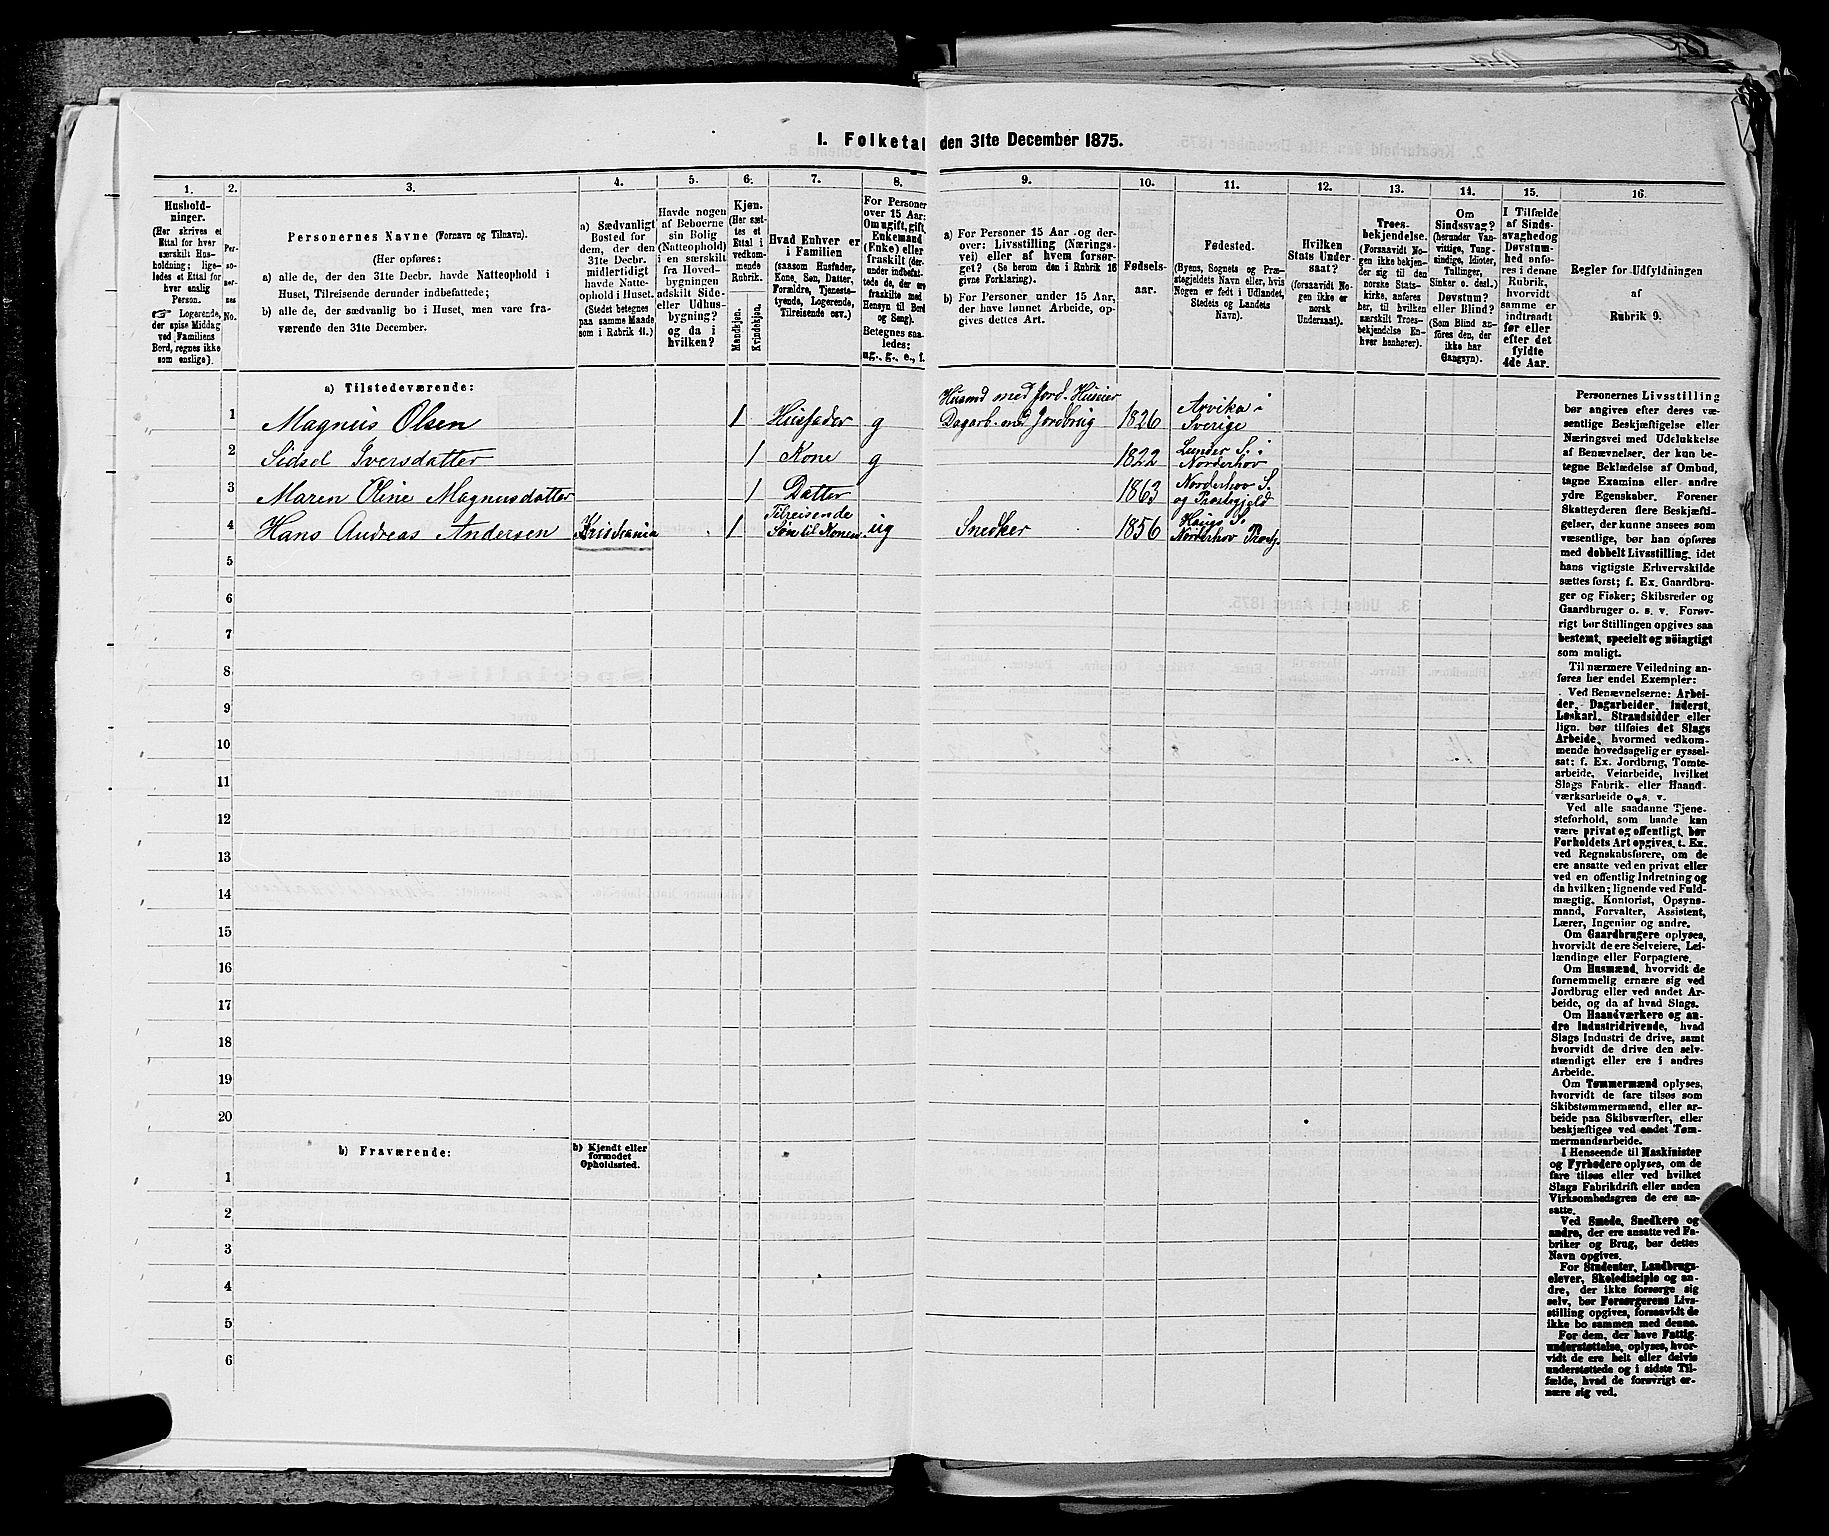 I. Folketal den 31te December 1875.
1. 2. 3. 4. 5. 6. 7. 8. 9. 10. 11. 12. 13. 14. 15. 16.
Hushold-
ninger.
(Her skrives et
Ettal for hver
særskilt Hus-
holdning; lige-
ledes et Ettal for
hver enslig
Person.
Logerende,
der spise Middag
ved Familiens
Bord, regnes ikke
som enslige).
Per-
so-
ner-
nes
No.
Personernes Navne (Fornavn og Tilnavn).
(Her opføres:
a) alle de, der den 31te Decbr. havde Natteophold i
Huset, Tilreisende derunder indbefattede;
b) alle de, der sædvanlig bo i Huset, men vare fra-
værende den 31te December.
a) Sædvanligt
Bosted for
dem, der den
31te Decbr.
midlertidigt
havde Natte-
ophold i Huset.
(Stedet betegnes
paa samme Maade
som i Rubrik 11.)
Havde nogen
af Beboerne
sin Bolig
(Natteophold)
i en særskilt
fra Hoved-
bygningen
adskilt Side-
eller Udhus-
bygning?
og da i
hvilken?
Kjøn.
(Her sæt-
tes et
Ettal i
vedkom-
mende
Rubrik.
Mandkjøn.
Kvindekjøn.
Hvad Enhver er
i Familien
(saasom Husfader,
Kone, Søn, Datter,
Forældre, Tjeneste-
tyende, Logerende,
Tilreisende osv.)
For Personer
over 15 Aar:
Om ugift, gift,
Enkemand
(Enke) eller
fraskilt (der-
under indbefat-
tede de, der ere
fraskilte med
Hensyn til Bord
og Seng).
Betegnes saa-
ledes:
ug., g., e., f.
a) For Personer 15 Aar og der-
over: Livsstilling (Nærings-
vei) eller af hvem forsør-
get? (Se herom den i Rubrik 16
givne Forklaring).
b) For Personer under 15 Aar,
der have lønnet Arbeide, op-
gives dettes Art.
Fødsels-
aar.
Fødested.
(Byens, Sognets og Præ-
stegjeldets Navn eller, hvis
Nogen er født i Udlandet,
Stedets og Landets
Navn).
Hvilken
Stats Under-
saat?
(forsaavidt No-
gen ikke er
norsk
Undersaat).
Troes-
bekjendelse.
(Forsaavidt No-
gen ikke bekjen-
der sig til den
norske Stats-
kirke, anføres
her, til hvilken
særskilt Troes-
bekjendelse En-
hver henhører).
Om
Sindssvag?
(herunder Van-
vittige, Tung-
sindige, Idioter,
Tullinger,
Sinker o. desl.)
Døvstum?
eller Blind?
(Som Blind an-
føres den, der
ikke har
Gangsyn).
I Tilfælde
af Sinds-
svaghed og
Døvstum-
hed anfø-
res i denne
Rubrik,
hvorvidt
samme er
indtraadt
før eller
efter det
fyldte
4de Aar.
Regler for Udfyldningen
af
Rubrik 9.
a) Tilstedeværende:
1 Magnus Olsen 1 Husfader g Husmd med Jord. Husier Dagarb. med Jordbrug 1826 Arvika i Sverige
2 Sidsel Iversdatter 1 Kone g 1822 Lunder S. i Norderhov
3 Maren Oline Magnusdatter 1 Datter 1863 Norderhov S. og Præstegjeld
4 Hans Andreas Andersen Kristiania 1 Tilreisende Søn til Konen ug Snedker 1856 Haugs S. Norderhov Præstg.
5
6
7
8
9
10
11
12
13
14
15
16
17
18
19
20
b) Fraværende:
b) Kjendt eller
formodet
Opholdssted.
1
2
3
4
5
6
Personernes Livsstilling
bør angives efter deres væ-
sentlige Beskjæftigelse eller
Næringsvei med Udelukkelse
af Benævnelser, der kun be-
tegne Beklædelse af Ombud,
tagne Examina eller andre
ydre Egenskaber. Forener
Skatteyderen flere Beskjæfti-
gelser, der kunne ansees som
væsentlige, bør han opføres
med dobbelt Livsstilling, idet
hans vigtigste Erhvervskilde
sættes først; f. Ex. Gaardbru-
ger og Fisker; Skibsreder og
Gaardbruger o. s. v. Forøv-
rigt bør Stillingen opgives saa
bestemt, specielt og nøiagtigt
som muligt.
Til nærmere Veiledning an-
føres her endel Exempler:
Ved Benævnelserne: Arbei-
der, Dagarbeider, Inderst,
Løskarl, Strandsidder eller
lign. bør tilføies det Slags
Arbeide, hvormed vedkom-
mende hovedsagelig er syssel-
sat: f. Ex. Jordbrug, Tomte-
arbeide, Veiarbeide, hvilket
Slags Fabrik- eller Haand-
værksarbeide o. s. v.
Ved alle saadanne Tjene-
steforhold, som baade kan
være privat og offentligt, bør
Forholdets Art opgives, t. Ex.
ved Regnskabsførere, om de
ere ansatte ved en privat eller
ved en offentlig Indretning og
da hvilken; lignende ved Fuld-
mægtig, Kontorist, Opsyns-
mand, Forvalter, Assistent,
Lærer, Ingeniør og andre.
Om Gaardbrugere oplyses,
hvorvidt de ere Selveiere, Lei-
lændinge eller Forpagtere.
Om Husmænd, hvorvidt de
fornemmelig ernære sig ved
Jordbrug eller ved andet Ar-
beide, og da af hvad Slags.
Om Haandværkere og an-
dre Industridrivende, hvad
Slags Industri de drive, samt
hvorvidt de drive den selv-
stændigt eller ere i andres
Arbeide.
Om Tømmermænd oplyses,
hvorvidt de fare tilsøs som
Skibstømmermænd, eller ar-
beide paa Skibsværfter, eller
beskjæftiges ved andet Tøm-
mermandsarbeide.
I Henseende til Maskinister
og Fyrbødere oplyses, om de
fare tilsøs eller ved hvilket
Slags Fabrikdrift eller anden
Virksomhedsgren de ere an-
satte.
Ved Smede, Snedkere og
andre, der ere ansatte ved Fa-
briker og Brug, bør dettes
Navn opgives.
For Studenter, Landbrugs-
elever, Skoledisciple og an-
dre, der ikke forsørge sig
selv, bør Forsørgerens Livs-
stilling opgives, forsaavidt de
ikke bo sammen med denne.
For dem, der have Fattig-
understøttelse, oplyses, hvor-
vidt de ere helt eller delvis
understøttede og i sidste Til-
fælde, hvad de forøvrigt er-
nære sig ved.